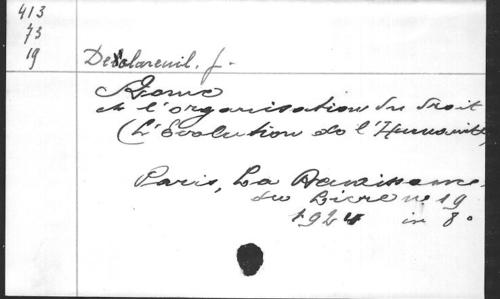 413
73
19
Déclareuil. J.
Rome
et l'organisation du droit
(L'Evolution de l'Humanité,
Paris, La Renaissance
du Livre n. 19
1924 in 8°